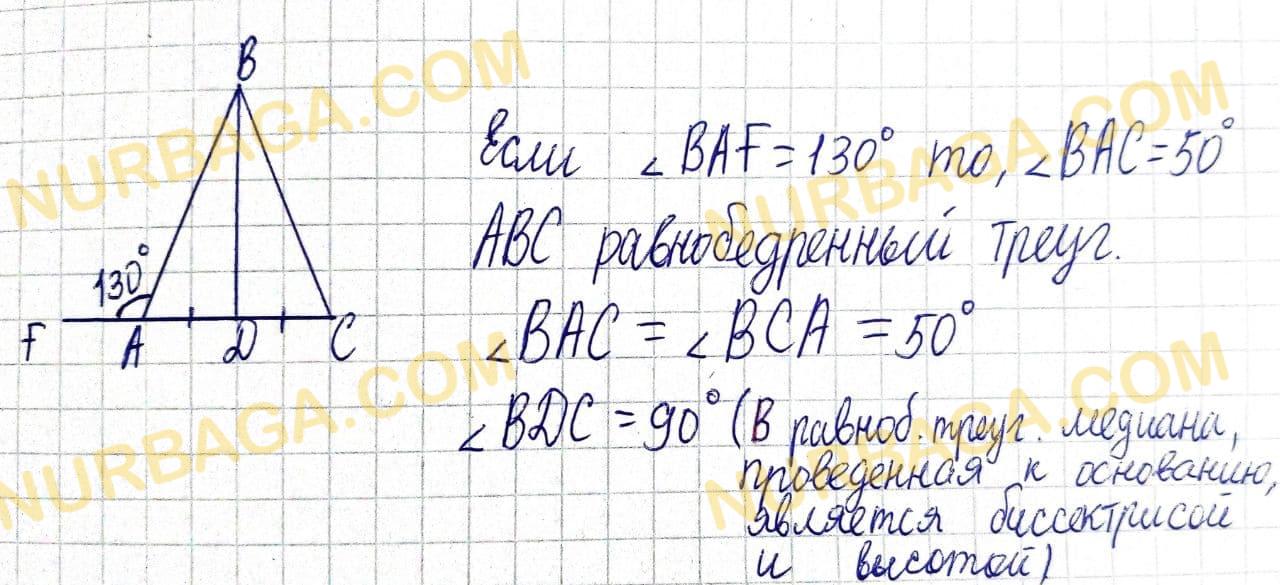 B
130°
F A D C
Если ∠BAF = 130° то, ∠BAC = 50°
ABC равнобедренный треуг.
∠BAC = ∠BCA = 50°
∠BDC = 90° (В равноб. треуг. медиана,
проведенная к основанию,
является биссектрисой
и высотой)
NURBAGA.COM
NURBAGA.COM
NURBAGA.COM
NURBAGA.COM